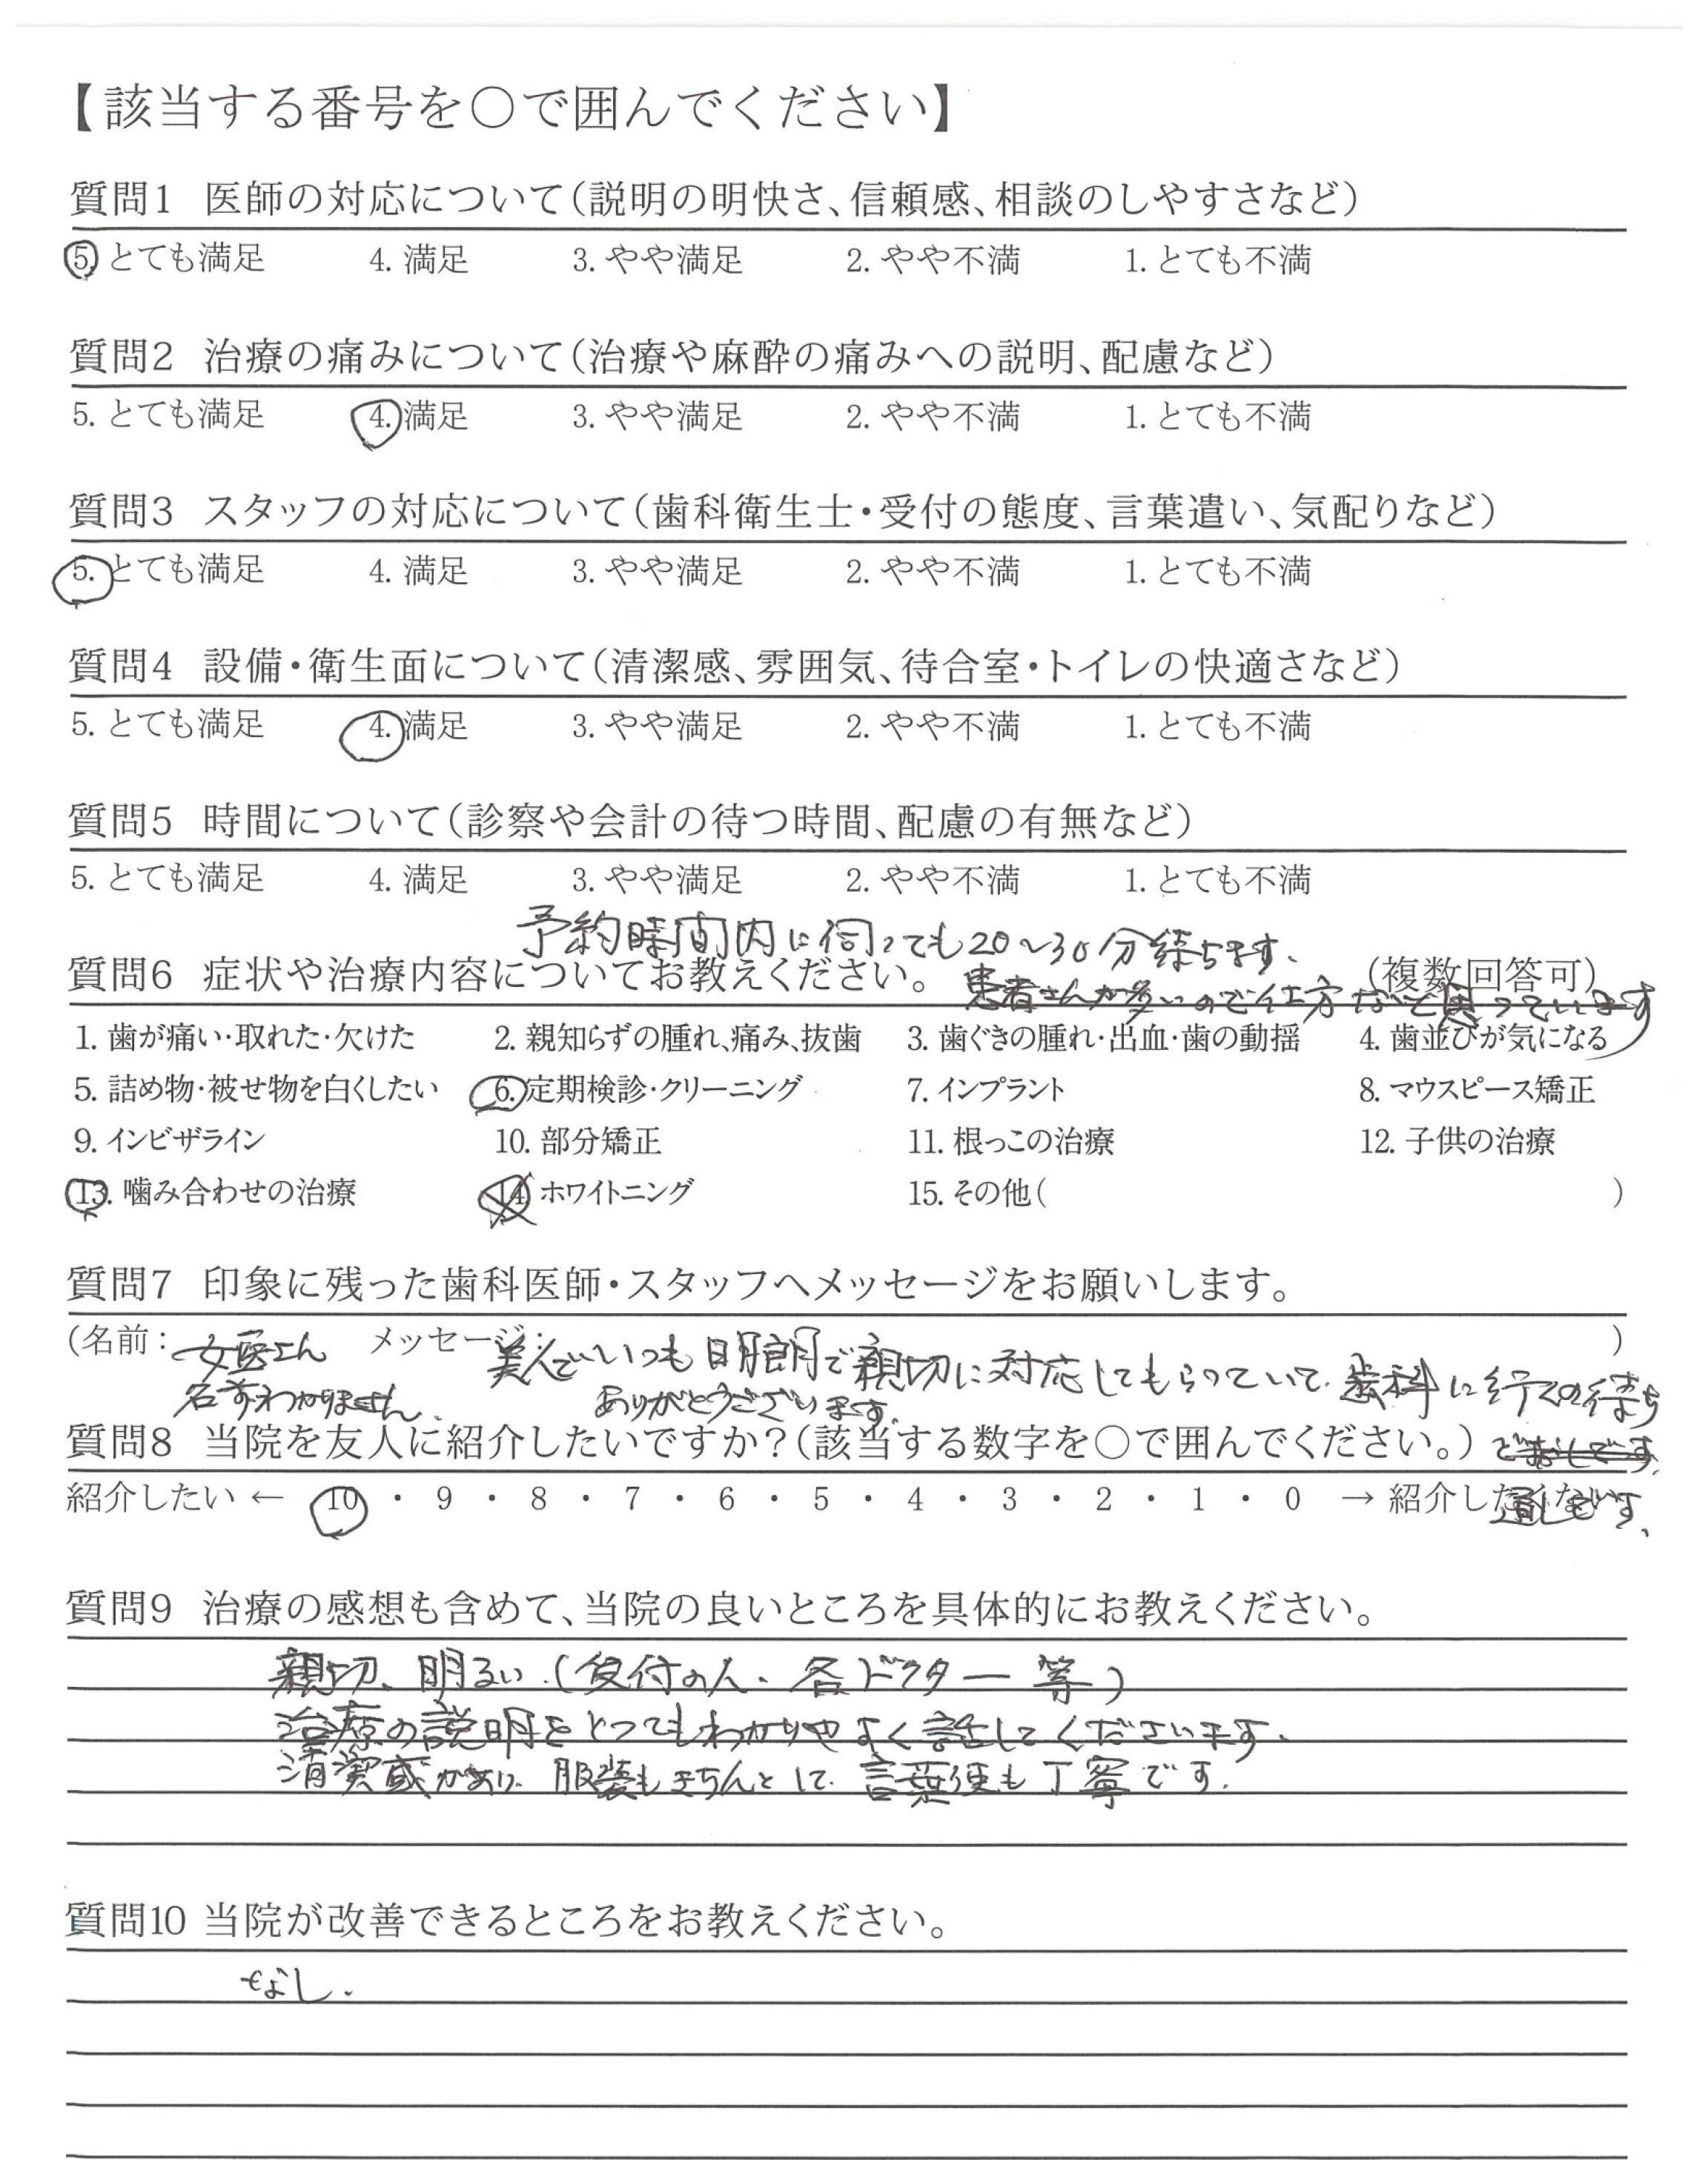 【該当する番号を○で囲んでください】
質問1 医師の対応について(説明の明快さ、信頼感、相談のしやすさなど)
5. とても満足 4. 満足 3. やや満足 2. やや不満 1. とても不満
質問2 治療の痛みについて(治療や麻酔の痛みへの説明、配慮など)
5. とても満足 4. 満足 3. やや満足 2. やや不満 1. とても不満
質問3 スタッフの対応について(歯科衛生士・受付の態度、言葉遣い、気配りなど)
5. とても満足 4. 満足 3. やや満足 2. やや不満 1. とても不満
質問4 設備・衛生面について(清潔感、雰囲気、待合室・トイレの快適さなど)
5. とても満足 4. 満足 3. やや満足 2. やや不満 1. とても不満
質問5 時間について(診察や会計の待つ時間、配慮の有無など)
5. とても満足 4. 満足 3. やや満足 2. やや不満 1. とても不満
予約時間内に伺っても20~30分待ちます.
質問6 症状や治療内容についてお教えください。 (複数回答可)
患者さんが多いので仕方ないと思っています
1. 歯が痛い・取れた・欠けた 2. 親知らずの腫れ、痛み、抜歯 3. 歯ぐきの腫れ・出血・歯の動揺 4. 歯並びが気になる
5. 詰め物・被せ物を白くしたい 6. 定期検診・クリーニング 7. インプラント 8. マウスピース矯正
9. インビザライン 10. 部分矯正 11. 根っこの治療 12. 子供の治療
13. 噛み合わせの治療 14. ホワイトニング 15. その他( )
質問7 印象に残った歯科医師・スタッフへメッセージをお願いします。
(名前: 女医さん メッセージ: 美人でいつも明朗で親切に対応してもらっていて.歯科に行くの待ち )
名まえわかりません. ありがとうございます.
質問8 当院を友人に紹介したいですか?(該当する数字を○で囲んでください。) ど
紹介したい ← 10 ・ 9 ・ 8 ・ 7 ・ 6 ・ 5 ・ 4 ・ 3 ・ 2 ・ 1 ・ 0 → 紹介したくない
遠しです.
質問9 治療の感想も含めて、当院の良いところを具体的にお教えください。
親切、明るい.(受付の人.各ドクター等)
治療の説明をとってもわかりやすく話してくださいます.
清潔感があり.服装もきちんとして.言葉使も丁寧です.
質問10 当院が改善できるところをお教えください。
なし.